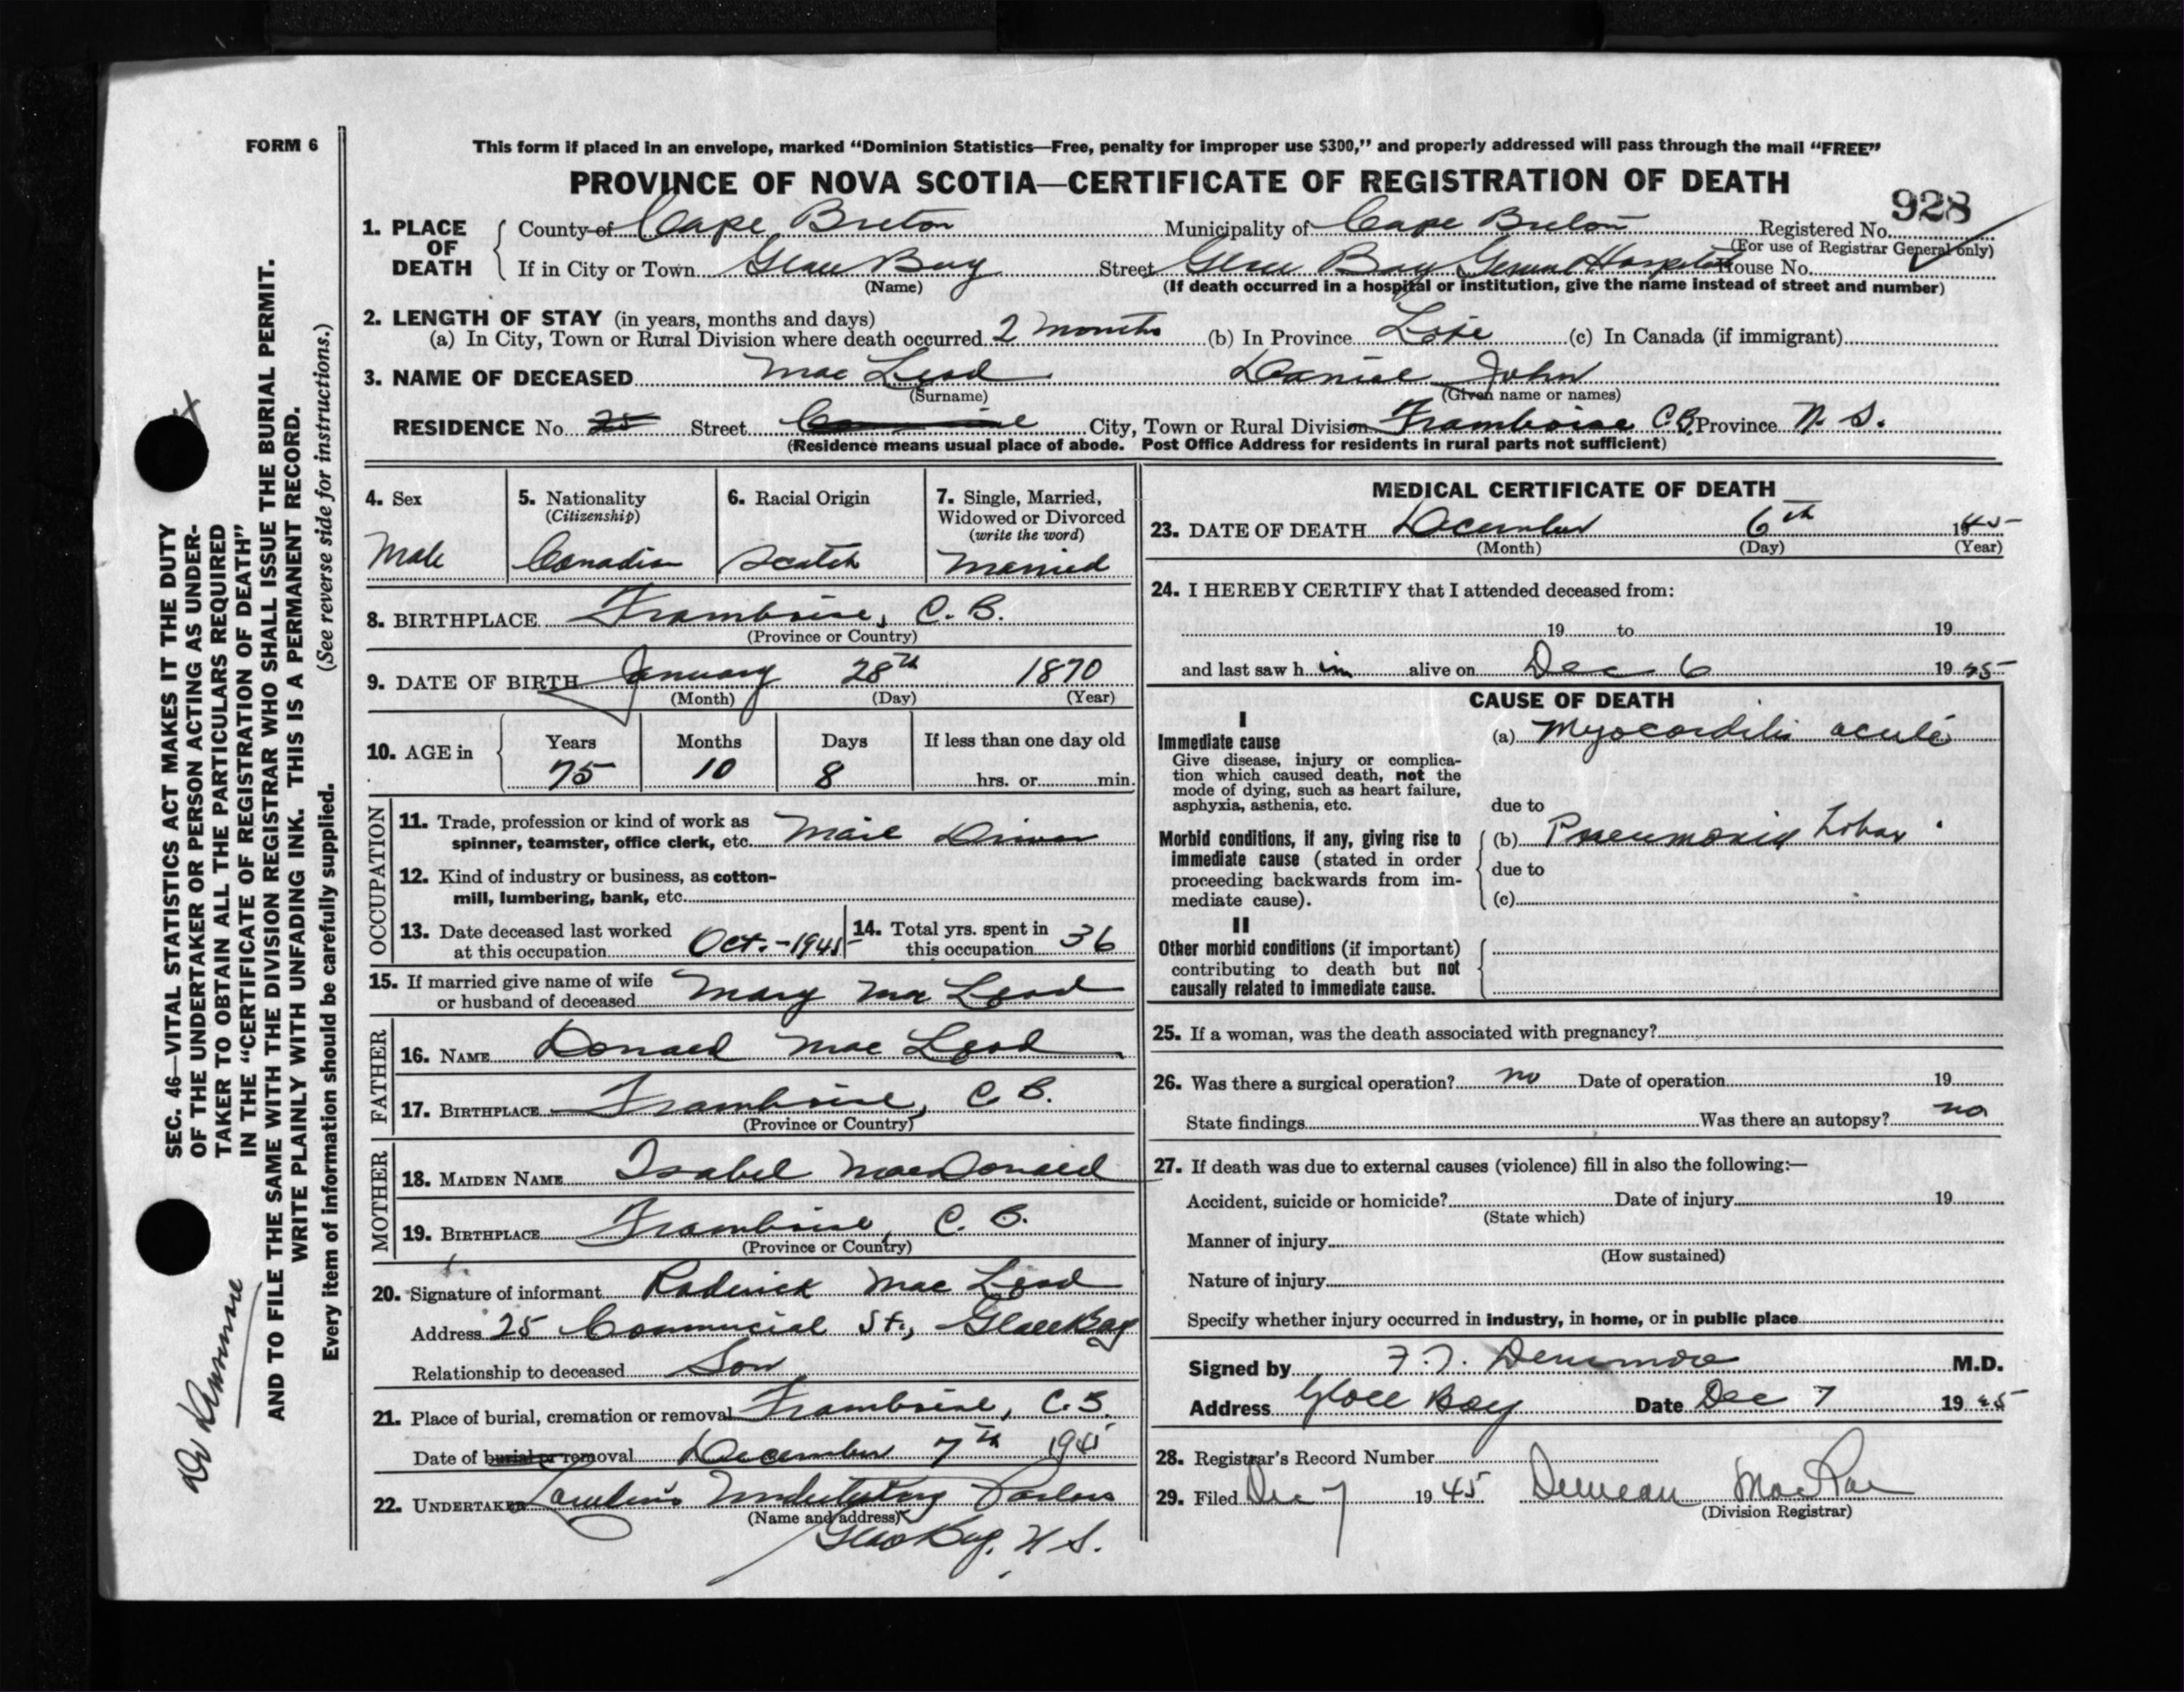 FORM 6
This form if placed in an envelope, marked “Dominion Statistics—Free, penalty for improper use $300,” and properly addressed will pass through the mail “FREE”
PROVINCE OF NOVA SCOTIA—CERTIFICATE OF REGISTRATION OF DEATH
928
1. PLACE OF DEATH
County of Cape Breton Municipality of Cape Breton Registered No.
(For use of Registrar General only)
If in City or Town Glace Bay Street Glace Bay General Hospital House No.
(Name) (If death occurred in a hospital or institution, give the name instead of street and number)
2. LENGTH OF STAY (in years, months and days)
(a) In City, Town or Rural Division where death occurred 2 months (b) In Province Life (c) In Canada (if immigrant)
3. NAME OF DECEASED Mac Leod Daniel John
(Surname) (Given name or names)
RESIDENCE No. 25 Street Commercial City, Town or Rural Division Framboise C.B. Province N. S.
(Residence means usual place of abode. Post Office Address for residents in rural parts not sufficient)
4. Sex
Male
5. Nationality
(Citizenship)
Canadian
6. Racial Origin
Scotch
7. Single, Married,
Widowed or Divorced
(write the word)
Married
8. BIRTHPLACE Framboise, C. B.
(Province or Country)
9. DATE OF BIRTH January 28th 1870
(Month) (Day) (Year)
10. AGE in
Years Months Days If less than one day old
75 10 8 hrs. or min.
OCCUPATION
11. Trade, profession or kind of work as
spinner, teamster, office clerk, etc. Mail Driver
12. Kind of industry or business, as cotton-
mill, lumbering, bank, etc.
13. Date deceased last worked
at this occupation Oct. - 1945
14. Total yrs. spent in
this occupation 36
15. If married give name of wife
or husband of deceased Mary Mac Leod
FATHER
16. NAME Donald Mac Leod
17. BIRTHPLACE Framboise, C. B.
(Province or Country)
MOTHER
18. MAIDEN NAME Isabel MacDonald
19. BIRTHPLACE Framboise, C. B.
(Province or Country)
20. Signature of informant Roderick Mac Leod
Address 25 Commercial St., Glace Bay
Relationship to deceased Son
21. Place of burial, cremation or removal Framboise, C.B.
Date of burial or removal December 7th 1945
22. UNDERTAKER Undertaking Parlors
(Name and address)
Glace Bay, N. S.
MEDICAL CERTIFICATE OF DEATH
23. DATE OF DEATH December 6th 1945
(Month) (Day) (Year)
24. I HEREBY CERTIFY that I attended deceased from:
19 to 19
and last saw h im alive on Dec 6 1945
CAUSE OF DEATH
I
Immediate cause
Give disease, injury or complica-
tion which caused death, not the
mode of dying, such as heart failure,
asphyxia, asthenia, etc.
(a) Myocarditis acute
due to
Morbid conditions, if any, giving rise to
immediate cause (stated in order
proceeding backwards from im-
mediate cause).
(b) Pneumonia Lobar
due to
(c)
II
Other morbid conditions (if important)
contributing to death but not
causally related to immediate cause.
25. If a woman, was the death associated with pregnancy?
26. Was there a surgical operation? no Date of operation 19
State findings Was there an autopsy? no
27. If death was due to external causes (violence) fill in also the following:—
Accident, suicide or homicide? Date of injury 19
(State which)
Manner of injury
(How sustained)
Nature of injury
Specify whether injury occurred in industry, in home, or in public place
Signed by M.D.
Address Glace Bay Date Dec 7 1945
28. Registrar's Record Number
29. Filed Dec 7 1945 Duncan MacRae
(Division Registrar)
SEC. 46—VITAL STATISTICS ACT MAKES IT THE DUTY
OF THE UNDERTAKER OR PERSON ACTING AS UNDER-
TAKER TO OBTAIN ALL THE PARTICULARS REQUIRED
IN THE “CERTIFICATE OF REGISTRATION OF DEATH”
AND TO FILE THE SAME WITH THE DIVISION REGISTRAR WHO SHALL ISSUE THE BURIAL PERMIT.
WRITE PLAINLY WITH UNFADING INK. THIS IS A PERMANENT RECORD.
Every item of information should be carefully supplied. (See reverse side for instructions.)